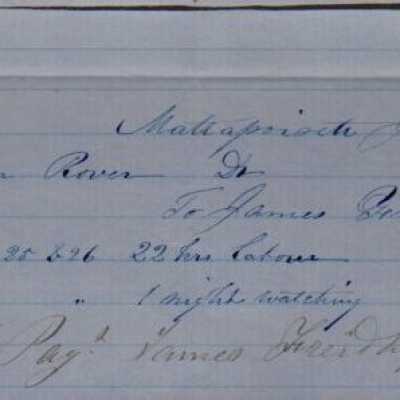 Mattapoisett
Rover Dr
To James
25 & 26 22 hrs labour
" 1 night watching
Pay^d James